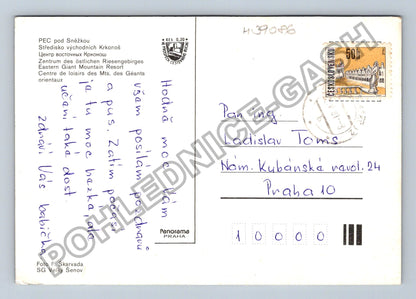 PEC pod Sněžkou
Středisko východních Krkonoš
Центр восточных Крконош
Zentrum des östlichen Riesengebirges
Eastern Giant Mountain Resort
Centre de loisirs des Mts. des Géants
orientaux
409086
50h
ČESKOSLOVENSKO
Hodně moc Vám
všem posílám pozdravů
a pus. Zatím počasí
je tu moc hezké, ale
učení také dost
zdraví Vás babička
Pan Ing.
Ladislav Toms
Nám. Kubánské revol. 24
Praha 10
10000
Panorama
PRAHA
Foto F. Skarvada
SG Velký Šenov
POHLEDNICE-GASH